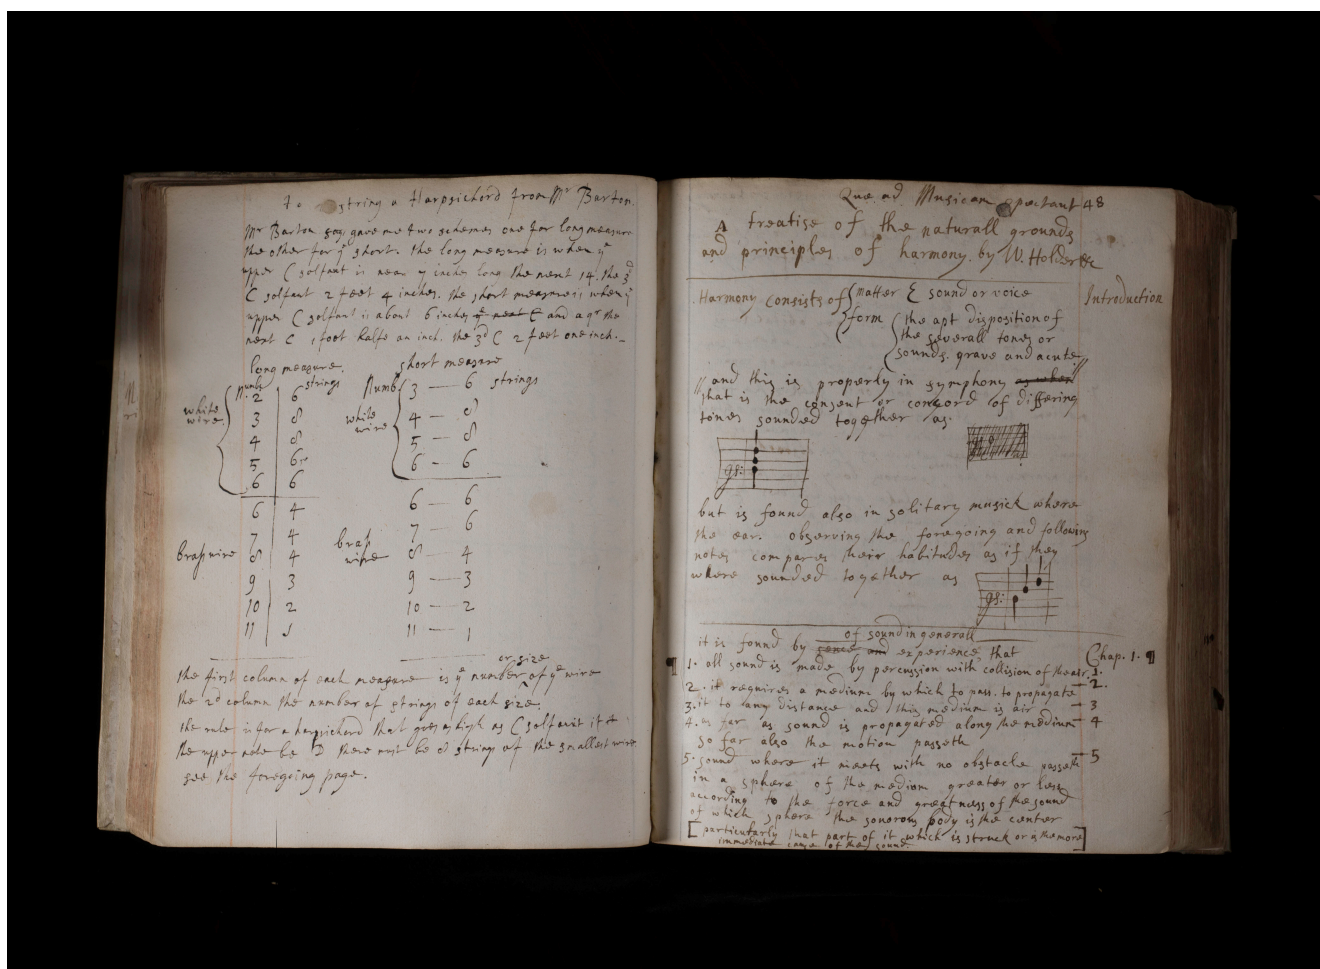 To string a Harpsichord from Mr Barton.
Mr Barton gave me two schemes one for long measure
the other for ye short. the long measure is when ye
upper C solfaut is near 7 inches long the next 14. the 3d
C solfaut 2 feet 4 inches. the short measure is when ye
upper C solfaut is about 6 inches and a qr the
next C 1 foot halfe an inch. the 3d C 2 feet one inch.
long measure. short measure
Numb strings Numb 3 — 6 strings
white wire 2 6
3 8 white wire 4 — 8
4 8 5 — 8
5 6 6 — 6
6 6
6 4 6 — 6
7 4 7 — 6
brass wire 8 4 brass wire 8 — 4
9 3 9 — 3
10 2 10 — 2
11 1 11 — 1
or size
the first column of each measure is ye number of ye wire
the 2d column the number of strings of each size.
the rule is for a harpsichord that goes as high as C solfaut if
the upper note be D there must be 8 strings of the smallest wire
see the foregoing page.
Quæ ad Musicam spectant 48
A treatise of the naturall grounds
and principles of harmony. by W. Holder &c
Harmony consists of matter & sound or voice Introduction
form the apt disposition of
the severall tones or
sounds. grave and acute
// and this is properly in symphony as when //
that is the consent or concord of differing
tones sounded together as.
gs:
but is found also in solitary musick where
the ear. observing the foregoing and following
notes compares their habitudes as if they
where sounded together as
gs:
of sound in generall
it is found by sence and experience that Chap. 1. ¶
¶ 1. all sound is made by percussion with collision of the air. 1.
2. it requires a medium by which to pass. to propagate — 2.
3. it to any distance and this medium is air — 3
4. as far as sound is propagated along the medium — 4
so far also the motion passeth
5. sound where it meets with no obstacle passeth — 5
in a sphere of the medium greater or less
according to the force and greatness of the sound
of which sphere the sonorous body is the center
[particularly that part of it which is struck or is the more]
immediate cause of the sound.